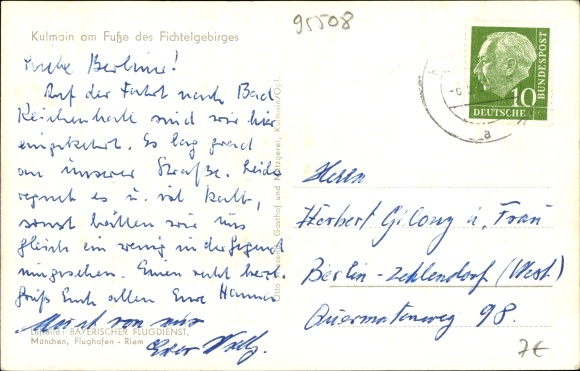 95508
Kulmain am Fuße des Fichtelgebirges
Liebe Berliner!
Auf der Fahrt nach Bad
Reichenhall sind wir hier
eingekehrt. Es lag grad
an unserer Straße. Leider
regnet es u. ist kalt,
sonst hätten wir uns
gleich ein wenig in der Gegend
umgesehen. Einen recht herzl.
Gruß Euch allen Eure Hanna
von mir
Euer
BAYERISCHER FLUGDIENST,
München, Flughafen - Riem
Otto Gasthof und Metzgerei, Kulmain/Opf.
10
DEUTSCHE
BUNDESPOST
a
Herrn
Herbert Gilony u. Frau
Berlin-Zehlendorf (West)
Quermatenweg 98
7€